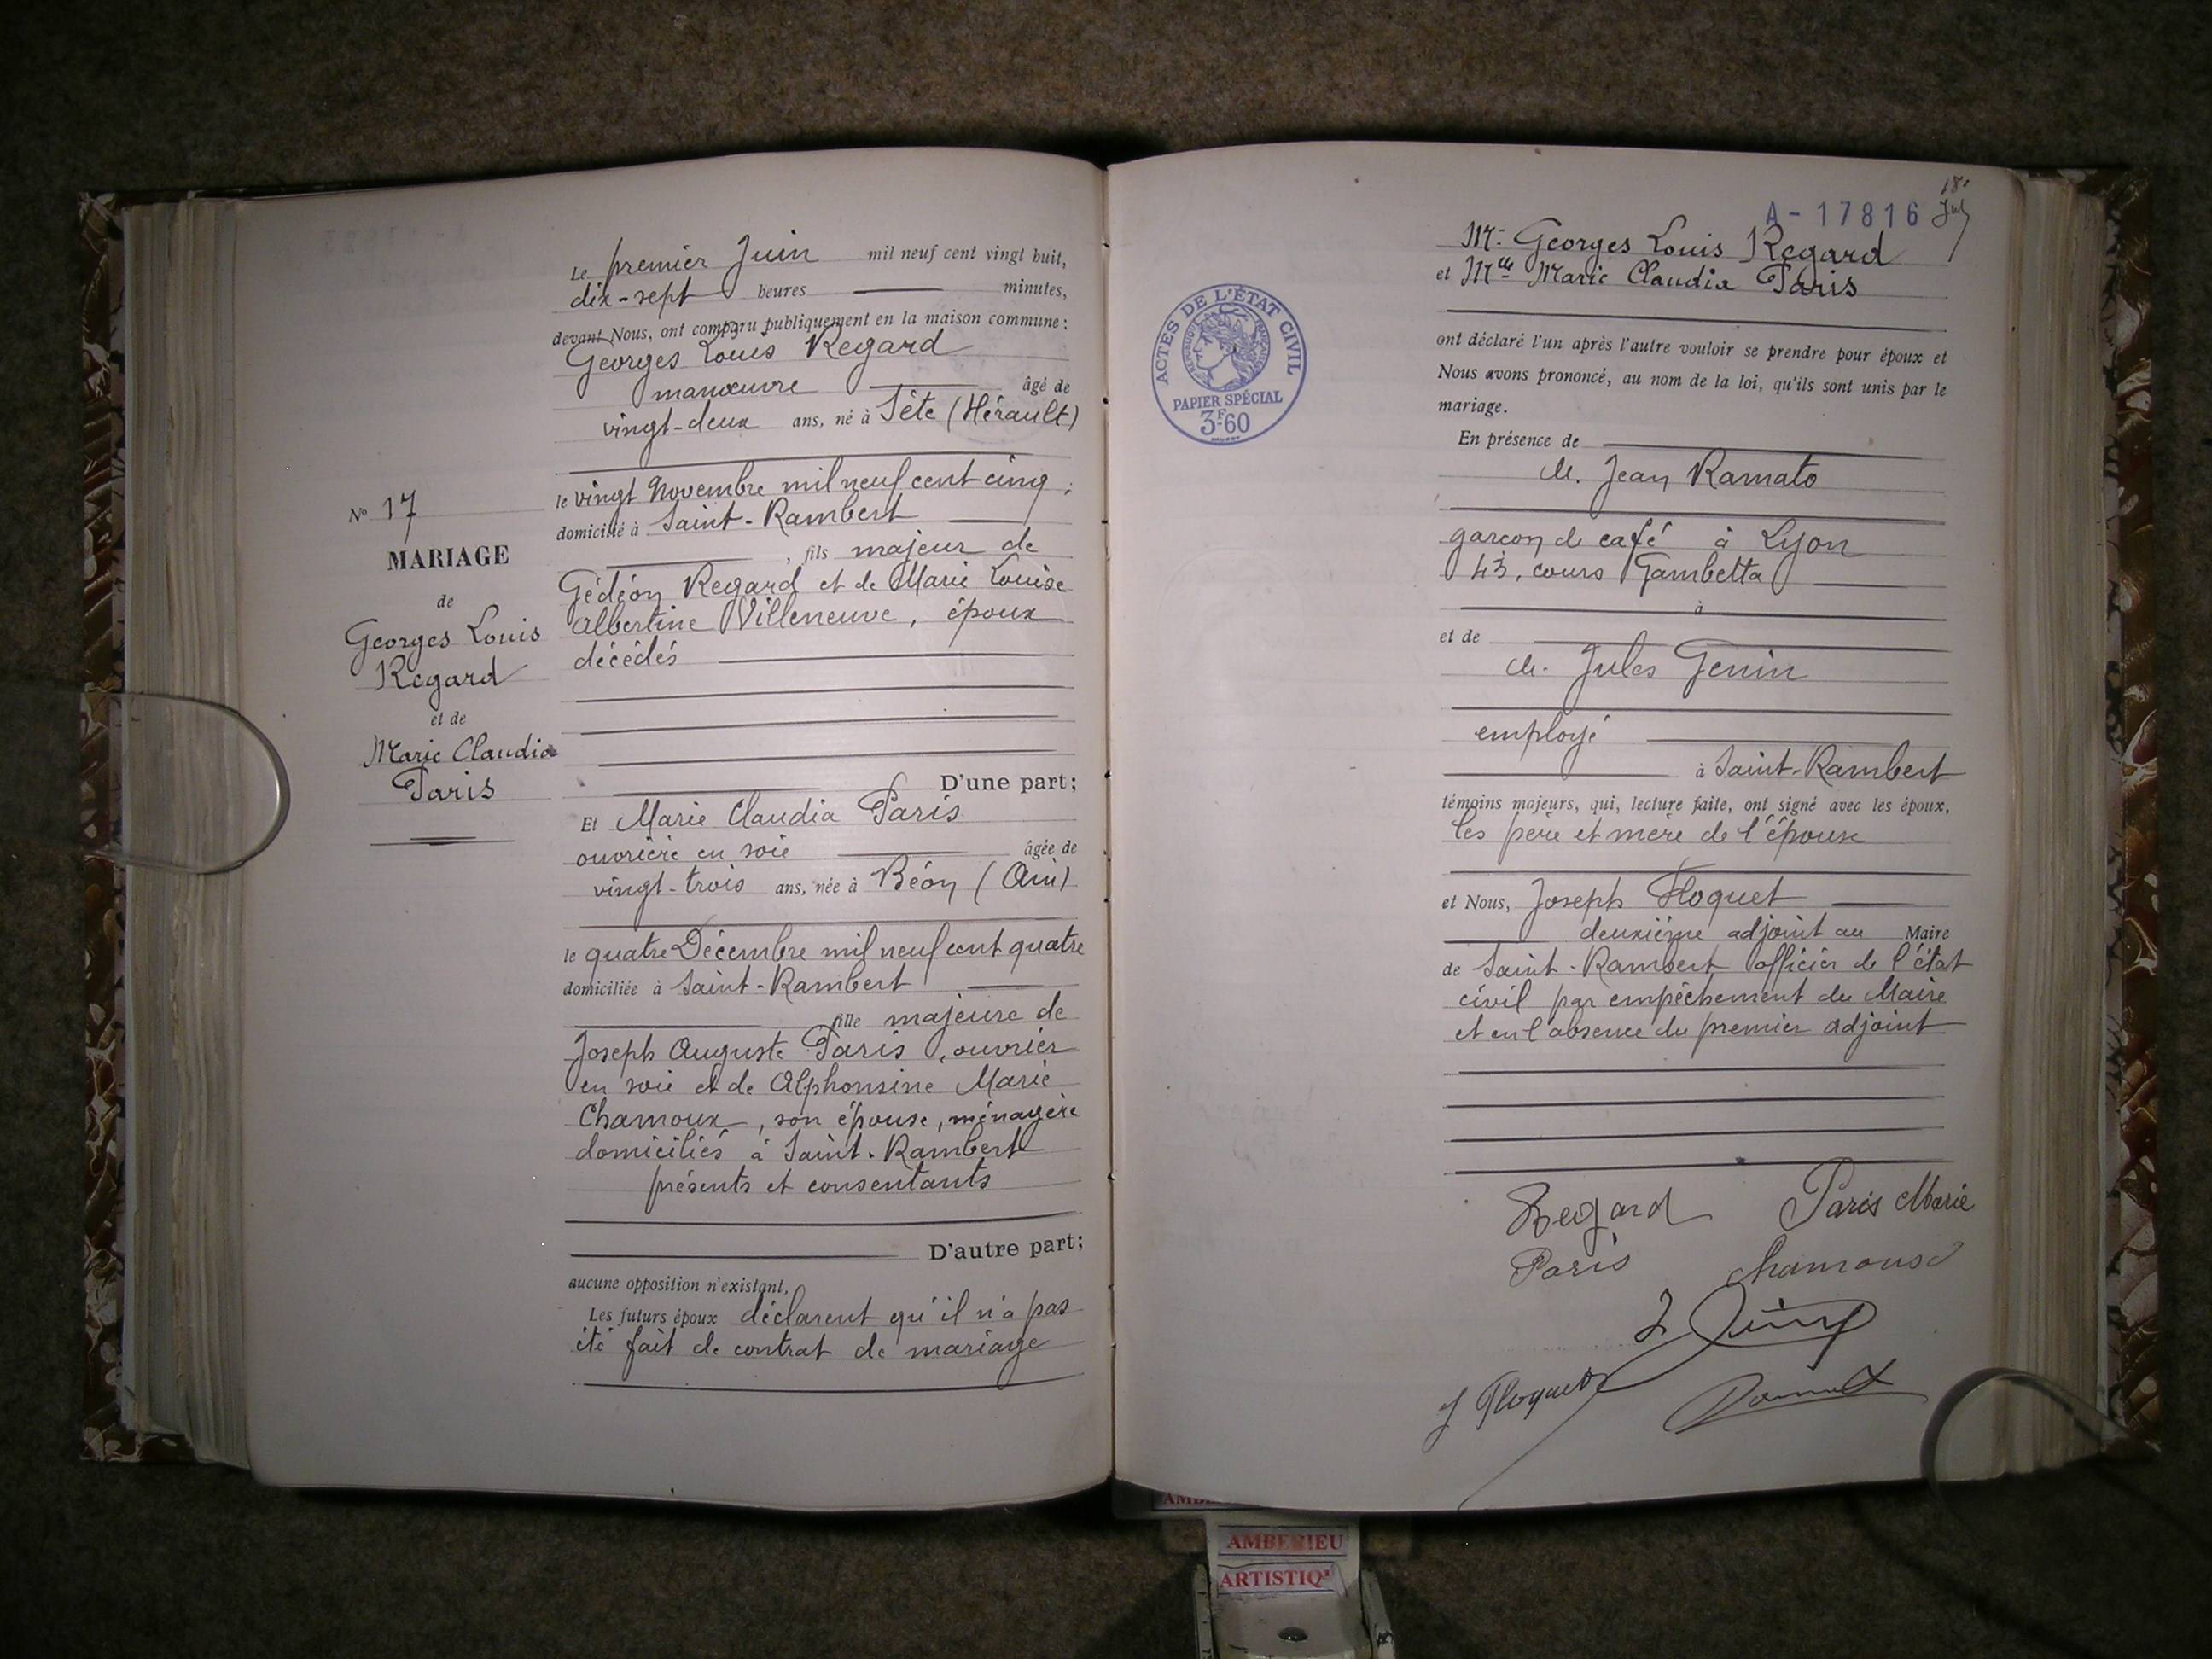 Le premier Juin mil neuf cent vingt huit,
dix-sept heures minutes,
devant Nous, ont comparu publiquement en la maison commune :
Georges Louis Regard
manœuvre âgé de
vingt-deux ans, né à Sète (Hérault)
le vingt Novembre mil neuf cent cinq ;
domicilié à Saint-Rambert
, fils majeur de
Gédéon Regard et de Marie Louise
Albertine Villeneuve, époux
décédés
D'une part;
Et Marie Claudia Paris
ouvrière en soie âgée de
vingt-trois ans, née à Béon (Ain)
le quatre Décembre mil neuf cent quatre
domiciliée à Saint-Rambert
fille majeure de
Joseph Auguste Paris, ouvrier
en soie et de Alphonsine Marie
Chamoux, son épouse, ménagère
domiciliés à Saint-Rambert
présents et consentants
D'autre part;
aucune opposition n'existant,
Les futurs époux déclarent qu'il n'a pas
été fait de contrat de mariage
No 17
MARIAGE
de
Georges Louis
Regard
et de
Marie Claudia
Paris
A-17816
ACTES DE L'ÉTAT CIVIL
RÉPUBLIQUE FRANÇAISE
PAPIER SPÉCIAL
3F60
Mr Georges Louis Regard
et Mlle Marie Claudia Paris
ont déclaré l'un après l'autre vouloir se prendre pour époux et
Nous avons prononcé, au nom de la loi, qu'ils sont unis par le
mariage.
En présence de
M. Jean Ramato
garçon de café à Lyon
43, cours Gambetta
à
et de
M. Jules Genin
employé
à Saint-Rambert
témoins majeurs, qui, lecture faite, ont signé avec les époux,
les père et mère de l'épouse
et Nous, Joseph Floquet
deuxième adjoint au Maire
de Saint-Rambert officier de l'état
civil par empêchement du Maire
et en l'absence du premier adjoint
Regard Paris Marie
Paris Chamoux
J Floquet
AMBERIEU
ARTISTIQ